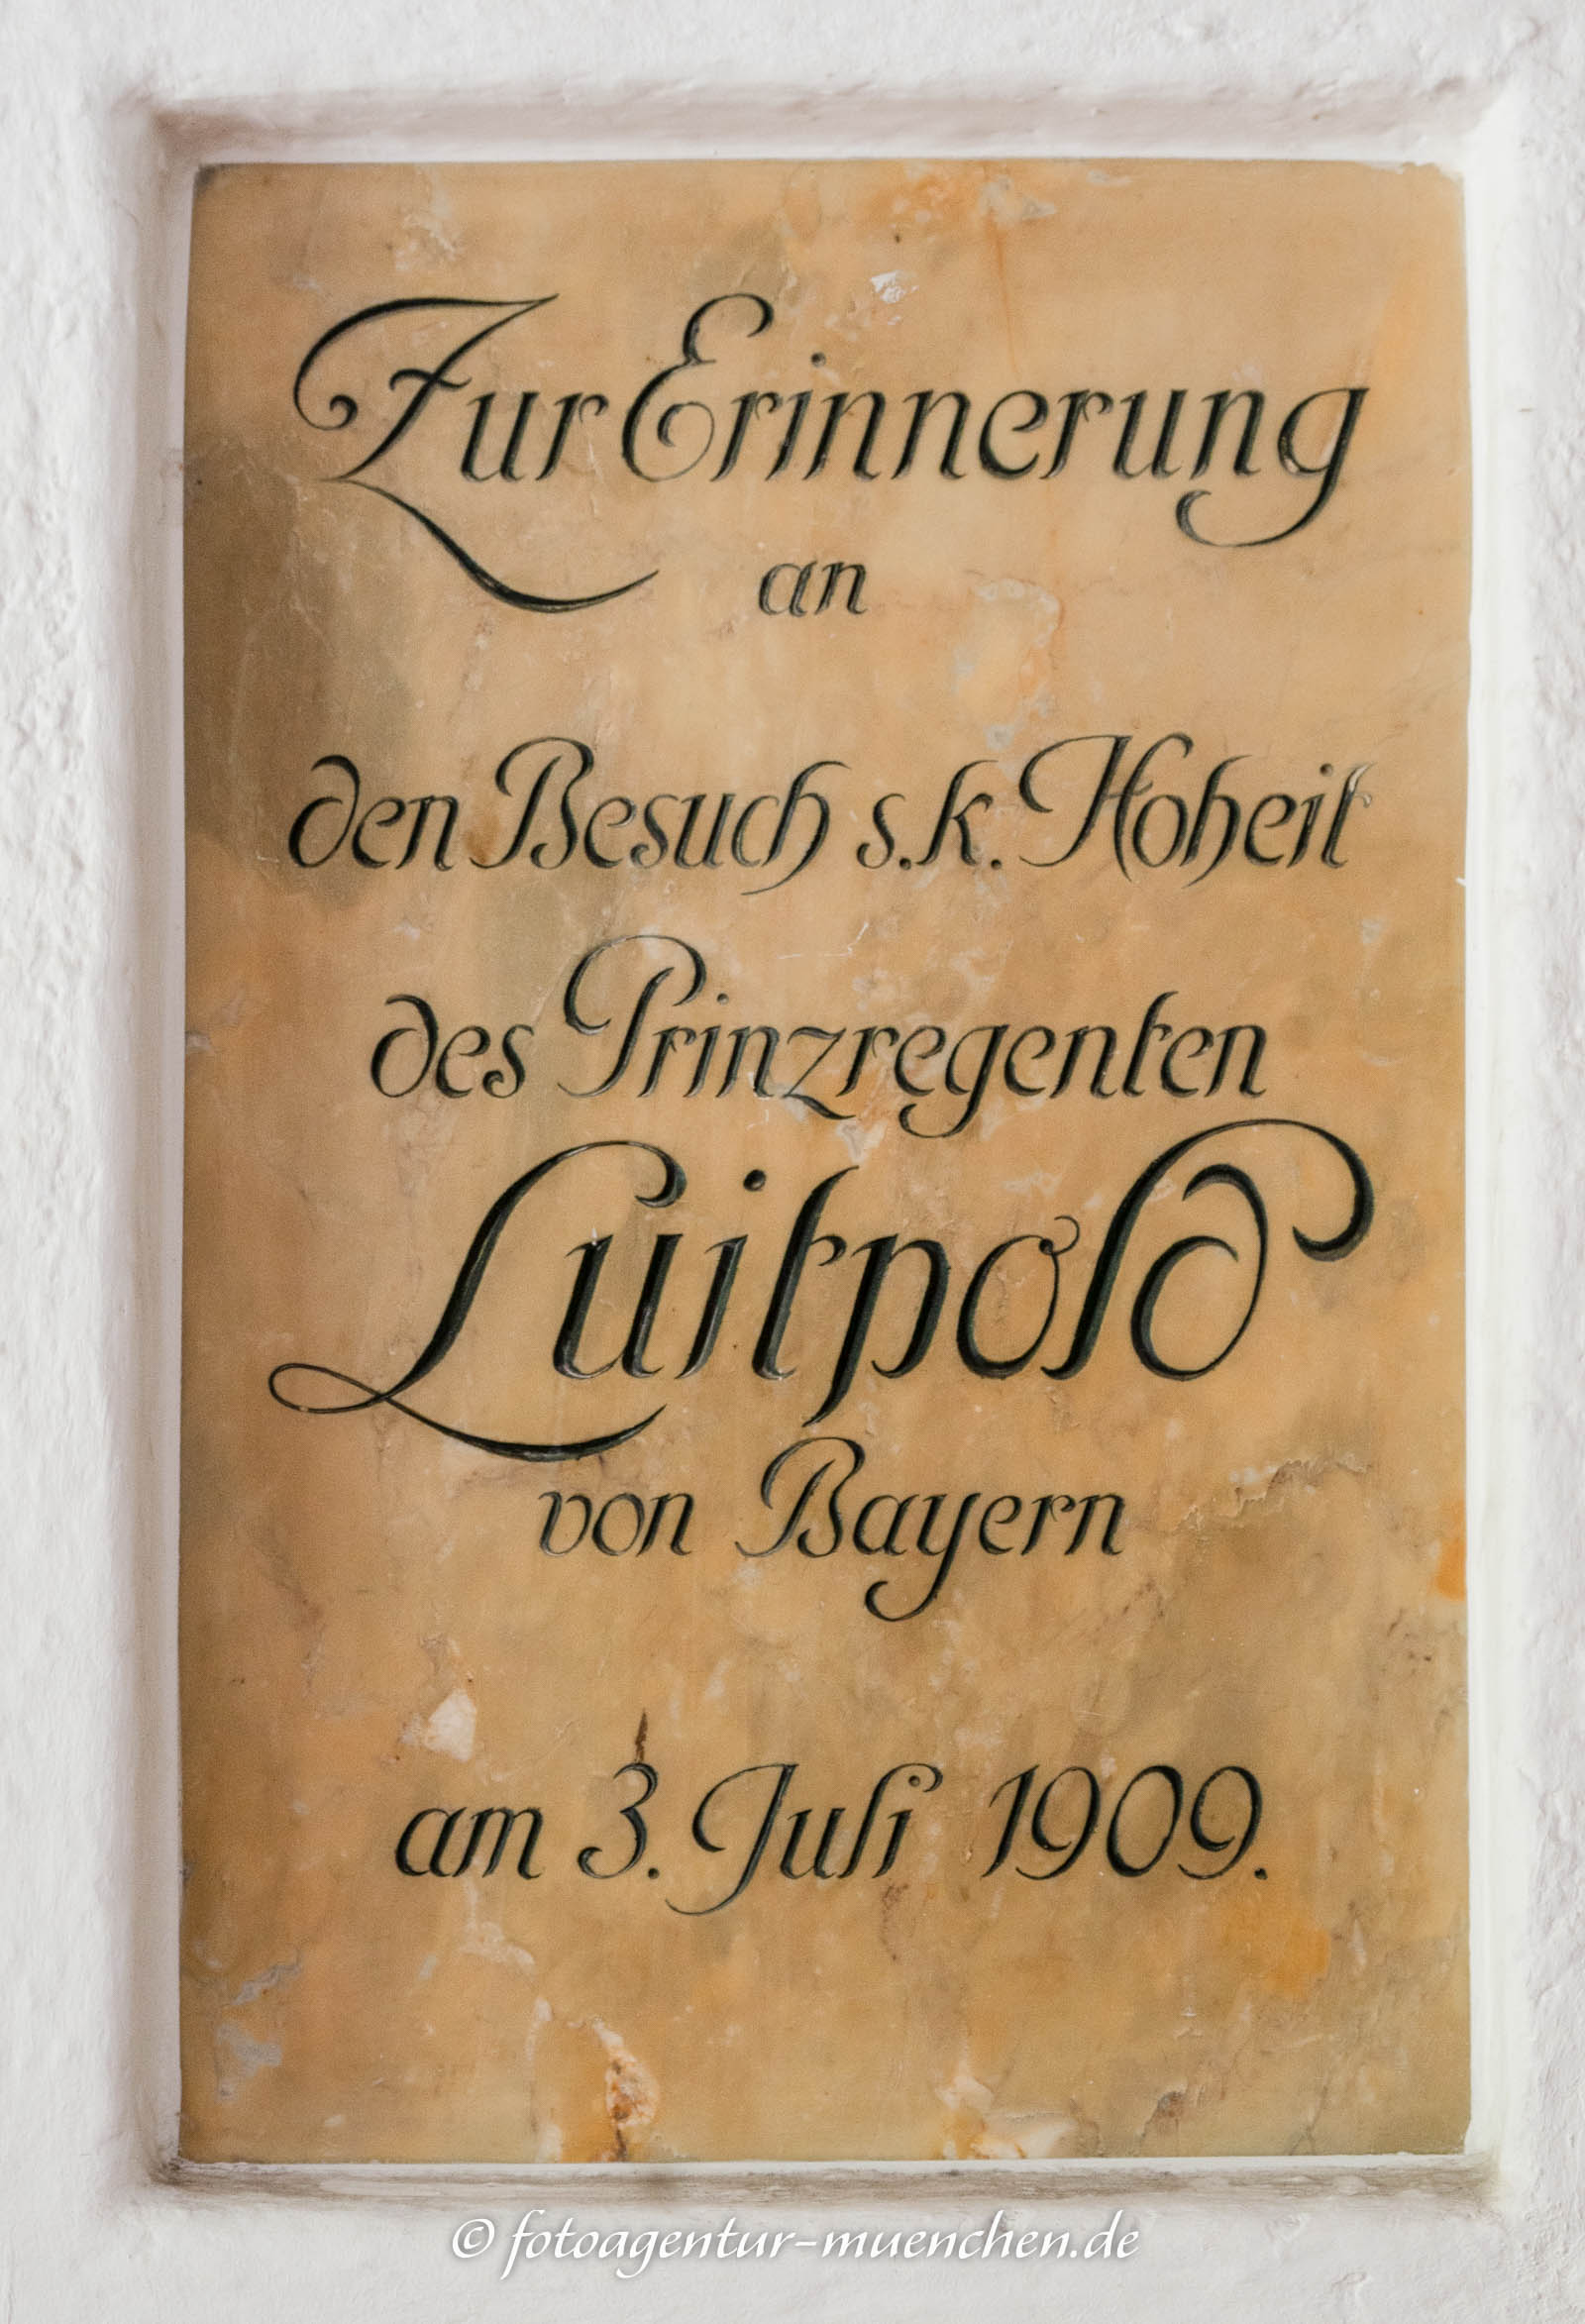 Zur Erinnerung
an
den Besuch s. k. Hoheit
des Prinzregenten
Luitpold
von Bayern
am 3. Juli 1909.
© fotoagentur-muenchen.de